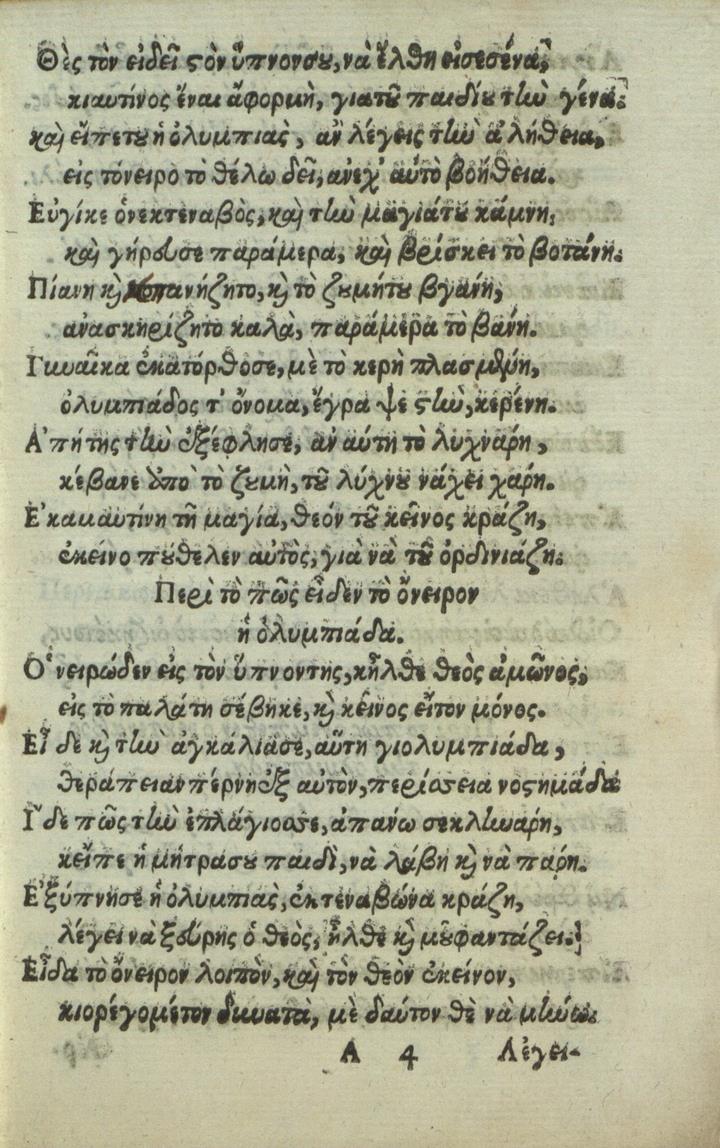 Θὲς τὸν εἰδεῖ στὸν ὕπνονσου, νὰ ἔλθη εἰσεσένα,
κιαυτίνος ἔναι ἄφορμὴ, γιατοῦ παιδίου τὴν γένα.
καὶ εἴπετου ἡ ὀλυμπιὰς, ἂν λέγεις τὴν ἀλήθεια,
εἰς τόνειρο τὸ θέλω δεῖ, ἀνεχ' αὐτὸ βοήθεια.
Εὐγίκε ὁνεκτεναβὸς, καὶ τὴν μαγιάτου κάμνη,
καὶ γήρουσε παράμερα, καὶ βρίσκει τὸ βοτάνη.
Πίανη κὶ κοπανήζητο, κὶ τὸ ζουμήτου βγαίνη,
ἀνασκηρίζητο καλὰ, παράμερα τὸ βανη.
Γυναῖκα ἐκατόρθοσε, μὲ τὸ κερὴ πλασμένη,
ὀλυμπιάδος τ' ὄνομα, ἔγραψε στὴν, κερένη.
Α'πήτης τὴν ἐξέφλησε, ἀν αὐτη τὸ λυχναρη,
κέβανε ἀπὸ τὸ ζουμὴ, τοῦ λύχνου νάχει χάρη.
Ε'καμαυτίνη τῆ μαγία, θεόν τοῦ κεῖνος κράζη,
ἐκείνο πούθελεν αὐτὸς, γιὰ νὰ τοῦ ὀρδινιάζη.
Περὶ τὸ πῶς εἶδεν τὸ ὄνειρον
ἡ ὀλυμπιάδα.
Ο'νειρώδεν εἰς τὸν ὕπνοντης, κῆλθε θεὸς ἀμῶνος,
εἰς τὸ παλάτη σέβηκε, κὶ κεῖνος εἶτον μόνος.
Εἶδε κὶ τὴν ἀγκάλιασε, αὔτη γιολυμπιάδα,
θεράπειαν πέρνη ἐξ αὐτὸν, περίσσεια νοστημάδα
Ι'δε πῶς τὴν ἐπλάγιοσε, ἀπάνω σεκλινάρη,
κεῖπε ἡ μήτρασου παιδὶ, νὰ λάβη κὶ νὰ πάρη.
Ε'ξύπνησε ἡ ὀλυμπιὰς, ἐκτεναβῶνα κράζη,
λέγει νὰ ξούρης ὁ θεὸς, ἦλθε κὶ μοῦφαντάζει.
Εἶδα τὸ ὄνειρον λοιπὸν, καὶ τὸν θεὸν ἐκείνον,
κιορέγομέτον δυνατὰ, μὲ δαύτον θὲ νὰ
Α 4 Λέγει-